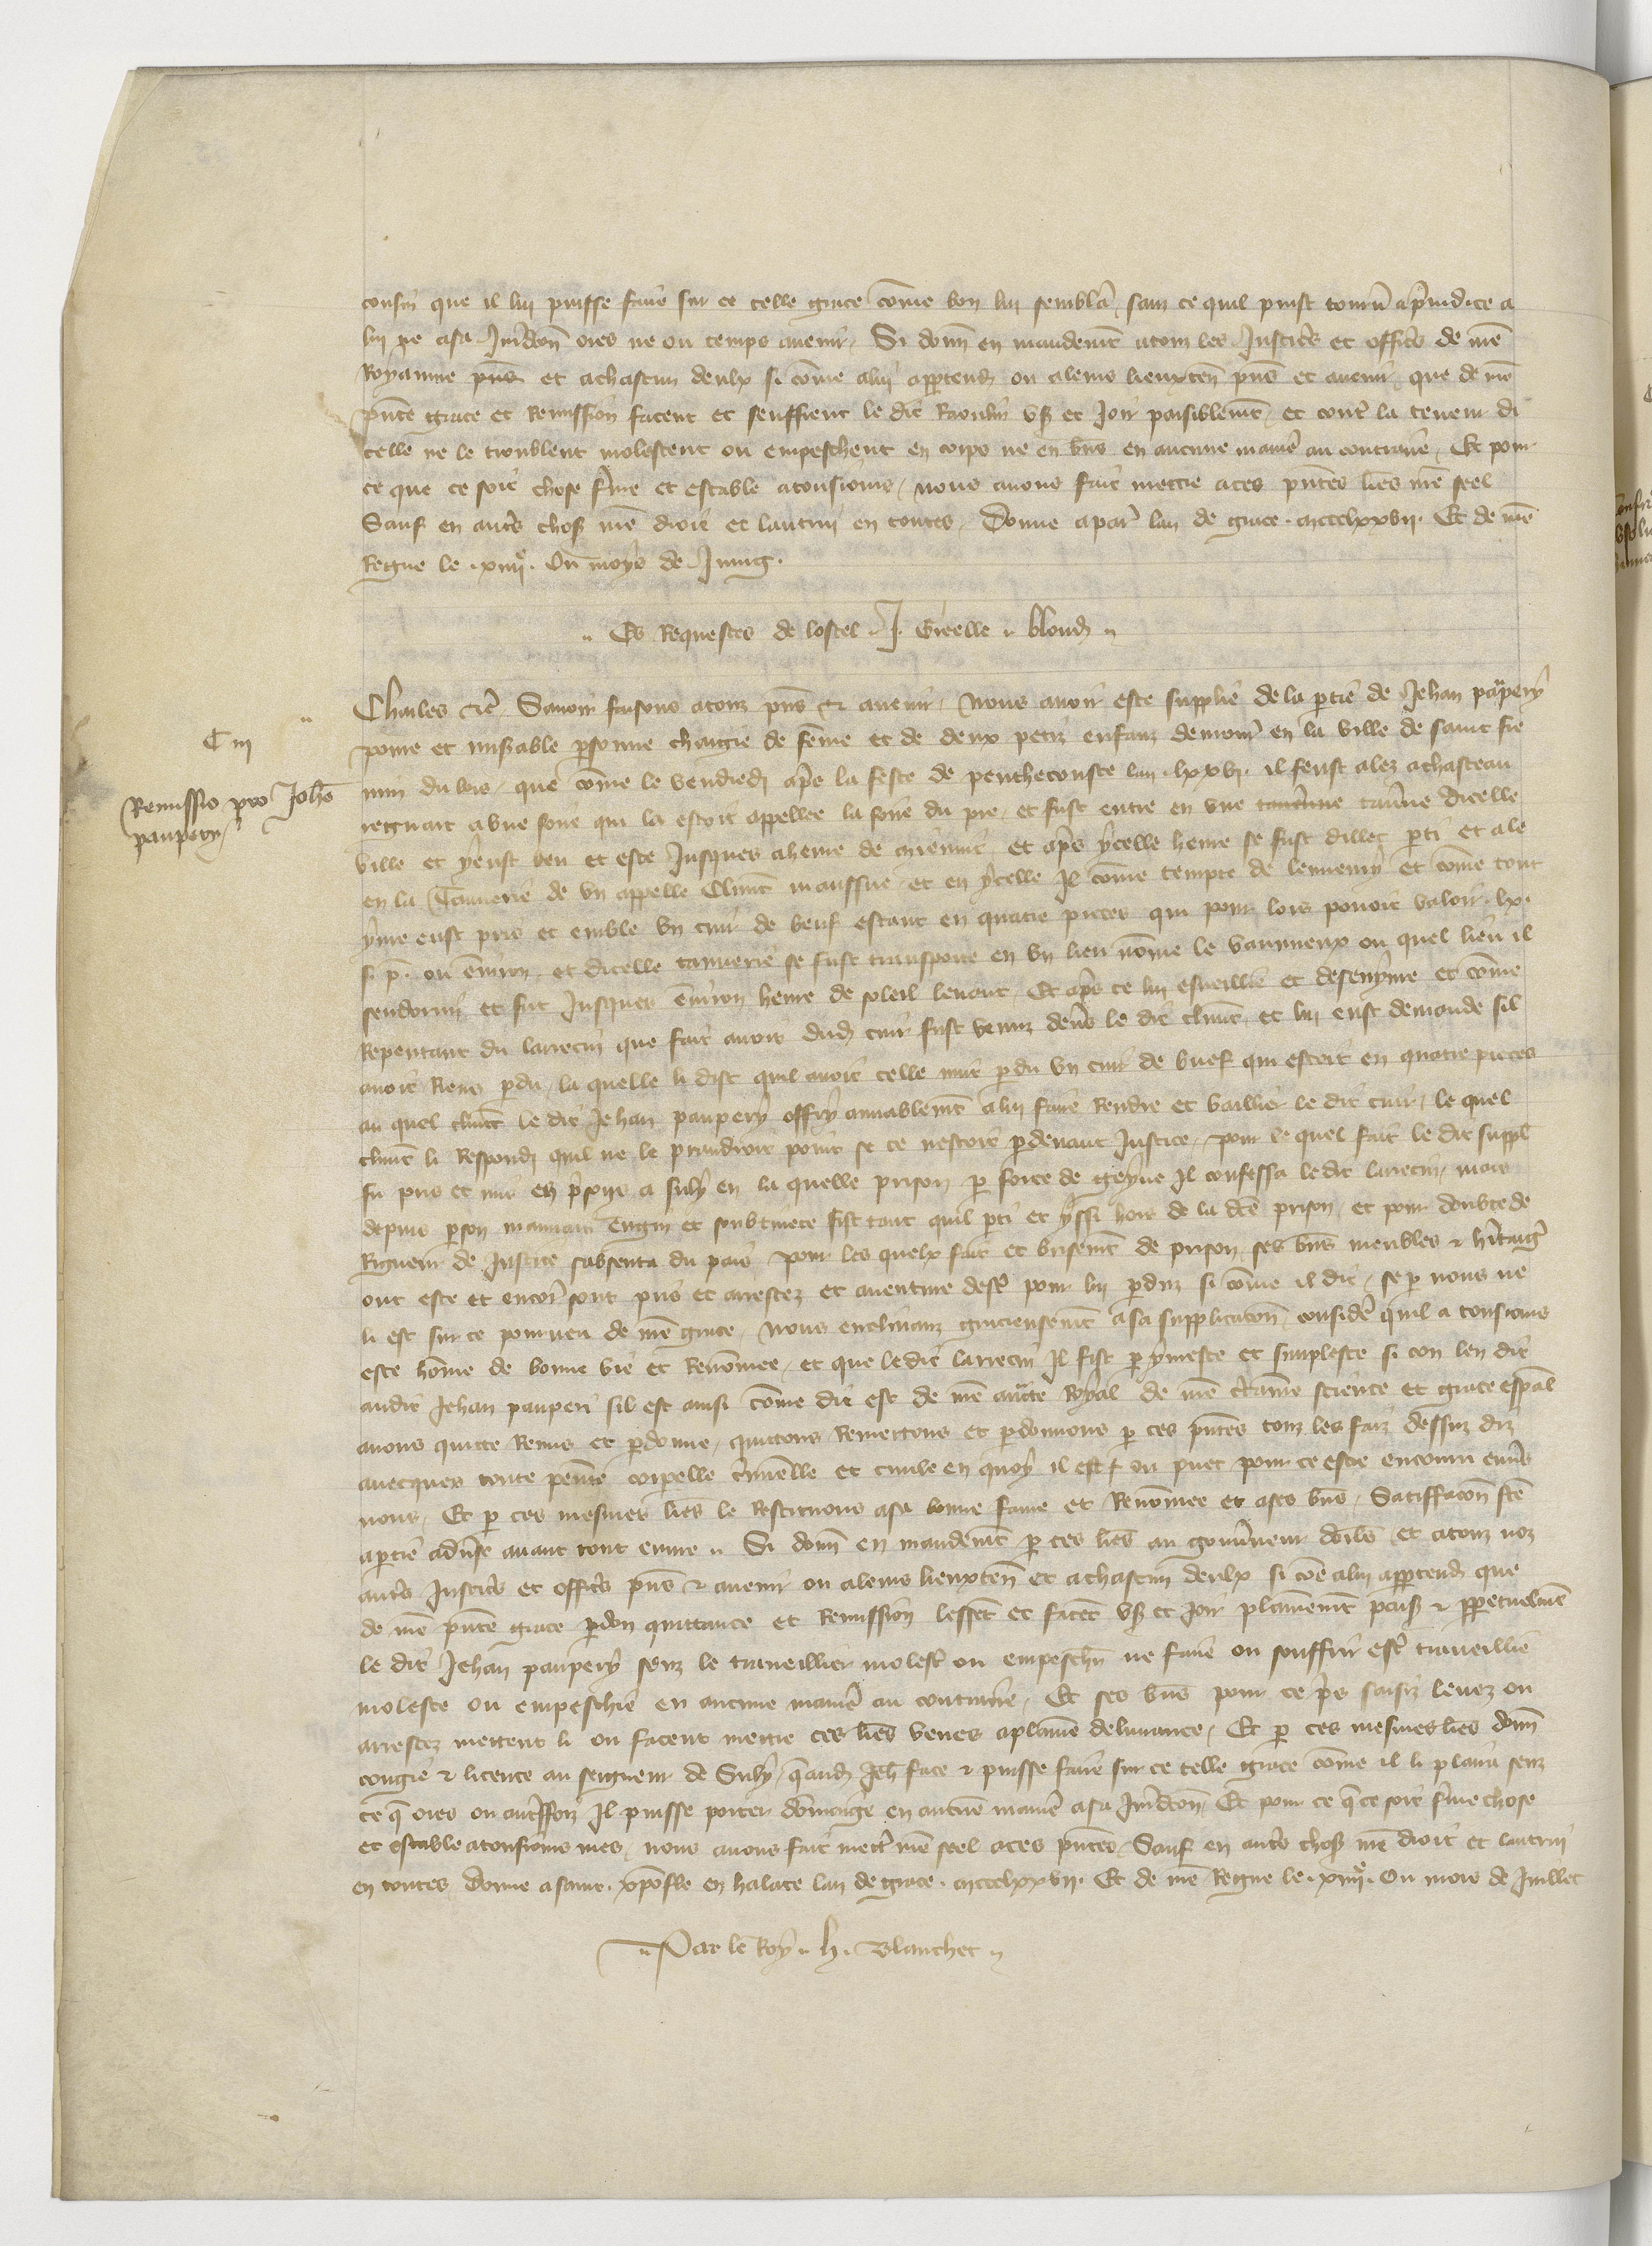 cousin que il lui puisse faire sur ce telle grace cõme bon lui semblã sanz ce quil puist tourñ a p̃iudice a
lui ne a sa Jurid̃con ores ne ou temps auenir Si donñ en mandem̃t a touz les Justic̃s et offic̃s de nr̃e
Royaume pñs et a chascun deulx si cõme a lui appartend̃ ou a leurs lieuxteñ pñs et auenir que de nr̃e
pñte grace et Remission facent et seuffrent le dit Raoulin vs̃ et Joir paisiblem̃t et contr̃ la teneur di
celle ne le troublent molestent ou empeschent en corps ne en biẽs en aucune manie᷑ au contraire Et pour
ce que ce soit chose ferme et estable a tousiours nous auons fait mettre a ces pñtes lr̃es nr̃e seel
Sauf en autr̃s chos̃ nr̃e droit et lautrui en toutes Donne a par᷑ lan de grace mccclxxvij Et de nr̃e
Regne le xiiije Ou moys de Juing
Es Requestes de lostel J. Greelle blond̃
Charles etc̃ Sauoir faisons a touz pñs et auenir Nous auoir este supplie de la p̱tie de Jehan paupery
poure et miserable p̱sonne chargie de fẽme et de deux petiz enfanz demour᷑ en la ville de saint fir
C iij
min du bois que cõme le vendredi apr̃s la feste de penthecouste lan lxxvj il feust alez a chasteau
Remissio pro Joh̃e
paupery
regnart a vne foire qui la estoit appellee la foire du pre et fust entre en vne tauerne dicelle
ville et y eust beu et este Jusques a heure de mienuit et apr̃s ycelle heure se fust dillec p̱ti et ale
en la Tannerie de vn appelle Climẽt maussue et en ycelle Il cõme tempte de lennemy et cõme tout
yure eust pris et emble vn cuir de beuf estant en quatre pieces qui pour lors pouoit valoir lx
s̃ p̃. ou enuiron et dicelle tannerie se fust transporte en vn lieu nõme le vaurineux ou quel lieu il
sendormi et fut Jusques enuiron heure de soleil leuant Et apr̃s ce lui esueillie et desenyure et cõme
Repentant du larrecin que fait auoit dud̃ cuir fust venuz deuers le dit climẽt et lui eust demande sil
auoit Riens p̱du la quelle li dist quil auoit celle nuit p̱du vn cuir de buef qui estoit en quatre pieces
au quel climẽt le dit Jehan paupery offry amiablem̃t a lui faire Rendre et baillier le dit cuir le quel
climẽt li Respondi quil ne le prandroit point se ce nestoit p̱deuant Justice pour le quel fait le dit suppl̃
fu pris et mis en prison a suly en la quelle prison p̱ force de geyne Il confessa le dit larrecin mais
depuis p̱ son mauuais engin et soubtiuete fist tant quil p̱ti et yssi hors de la dc̃e prison et pour doubte de
Rigueur de Justice sabsenta du pais pour les quelx fait et brisem̃t de prison ses biẽs meubles et heritag̃
ont este et encor᷑ sont pris et arrestez et auenture dest᷑ pour lui p̱duz si cõme il dit se p̱ nous ne
li est sur ce pourueu de nr̃e grace Nous enclinanz gracieusem̃t a sa supplicacon consider᷑ quil a tousiours
este hõme de bonne vie et Renõmee et que le dit larrecin Il fist p̱ yuresce et simplesce si con len dit
au dit Jehan paupery sil est ainsi cõme dit est de nr̃e auct̃e Royal de nr̃e certaine science et grace esp̃al
auons quitte Remis et p̱donne quittons Remettons et p̱donnons p̱ ces pñtes touz les faiz dessuz diz
auecques toute peine corpelle criminelle et ciuile en quoy il est ou puet pour ce estre encouru enuers
nous Et p̱ ces mesmes lr̃es le Restituons a sa bonne fame et Renõmee et a ses biẽs Satiffacon fc̃e
a p̱tie aduerse auant tout euure Si donñ en mandem̃t p̱ ces lr̃es au gouuerneur dorlñs et a touz noz
autr̃s Justic̃s et offic̃s pñs et auenir ou a leurs lieuxteñ et a chascun deulx si cõe a lui appartend̃ que
de nr̃e pñte grace p̱don quittance et Remission lessẽt et facẽt vs̃ et Joir plainem̃t pais̃ et p̱petuelmẽ
le dit Jehan paupery senz le traueillier molest᷑ ou empeschier ne faire ou souffrir est᷑ traueillie
moleste ou empeschie en aucune manie᷑ au contraire Et ses biẽs pour ce pris saisiz leuez ou
arrestez mettent li ou facent mettre ces lr̃es veues a plaine deliurance Et p̱ ces mesmes lr̃es donñ
congie et licence au seigneur de Suly quaud̃ Jeh̃ face et puisse faire sur ce telle grace cõme il li plaira senz
ce q̃ ores ou autreffoiz Il puisse porter dõmaige en aucune manie᷑ a sa Jurid̃con Et pour ce q̃ ce soit ferme chose
et estable a tousiours mes nous auons fait mett᷑ nr̃e seel a ces pñtes Sauf en autr̃s chos̃ nr̃e droit et lautrui
en toutes Donne a saint xp̃ofle en halate lan de grace mccclxxvij Et de nr̃e Regne le xiiije Ou mois de Juillet
Par le Roy h. Blanchet